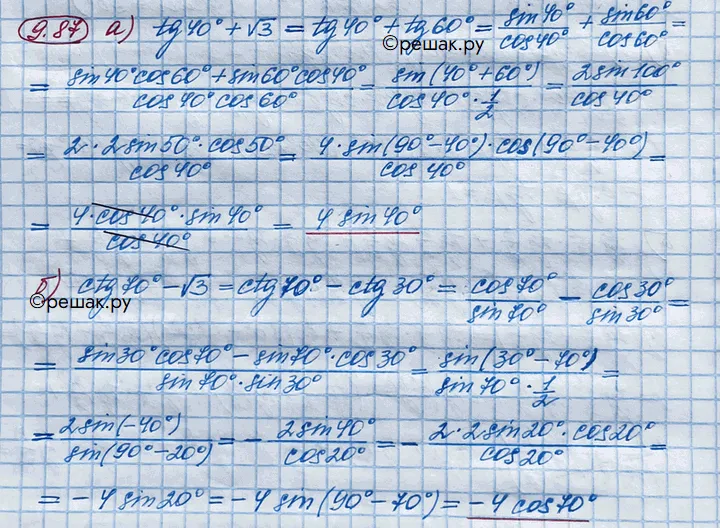 9.87 а) tg40° + √3 = tg40° + tg60° = sin40°/cos40° + sin60°/cos60° =
©решак.ру
= (sin40°cos60° + sin60°cos40°)/(cos40°cos60°) = sin(40° + 60°)/(cos40° · 1/2) = 2sin100°/cos40°
= (2 · 2sin50° · cos50°)/cos40° = (4 · sin(90° - 40°) · cos(90° - 40°))/cos40° =
= (4 · cos40° · sin40°)/cos40° = 4 sin40°
б) ctg70° - √3 = ctg70° - ctg30° = cos70°/sin70° - cos30°/sin30° =
©решак.ру
= (sin30°cos70° - sin70° · cos30°)/(sin70° · sin30°) = sin(30° - 70°)/(sin70° · 1/2) =
= 2sin(-40°)/sin(90° - 20°) = - 2sin40°/cos20° = - (2 · 2sin20° · cos20°)/cos20° =
= - 4 sin20° = - 4 sin(90° - 70°) = - 4 cos70°